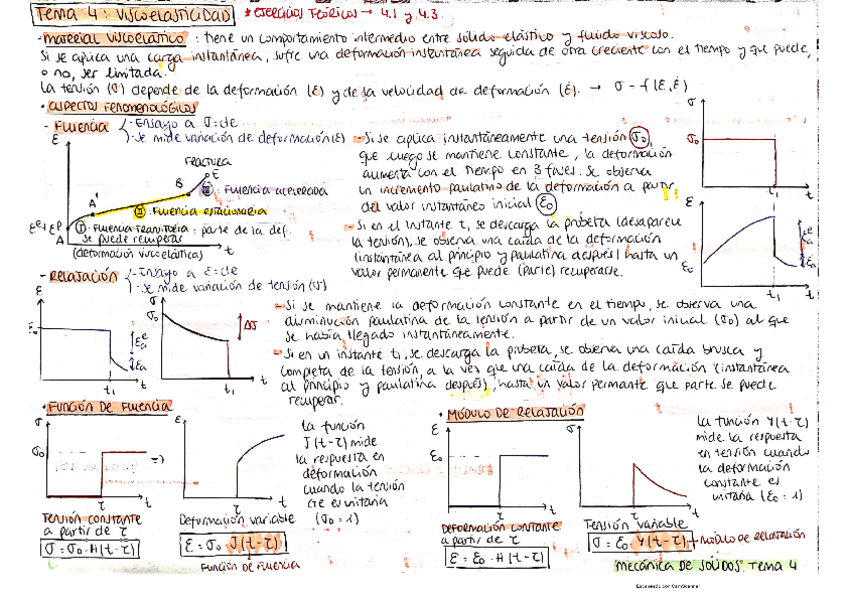 Tema 4: VISCOELASTICIDAD * EJERCICIOS TEÓRICOS → 4.1 y 4.3
- MATERIAL VISCOELÁTICO: tiene un comportamiento intermedio entre sólido elástico y fluido viscoso.
Si se aplica una carga instantánea, sufre una deformación instantánea seguida de otra creciente con el tiempo y que puede,
o no, ser limitada.
La tensión (σ) depende de la deformación (ε) y de la velocidad de deformación (ε̇). → σ = f(ε, ε̇)
• ASPECTOS FENOMENOLÓGICOS
- FLUENCIA
- Ensayo a σ = cte
- Se mide variación de deformación (ε)
ε
FRACTURA
E
B
III: Fluencia acelerada
A'
II: Fluencia estacionaria
εe + εp
I: Fluencia transitoria: parte de la def.
se puede recuperar
A
t
(deformación viscoelástica)
⇒ Si se aplica instantáneamente una tensión σ0,
que luego se mantiene constante, la deformación
aumenta con el tiempo en 3 fases. Se observa
un incremento paulatino de la deformación a partir
del valor instantáneo inicial ε0
⇒ Si en el instante t1 se descarga la probeta (desaparece
la tensión), se observa una caída de la deformación
(instantánea al principio y paulatina después) hasta un
valor permanente que puede (parte) recuperarse.
σ
σ0
t1
t
ε
ε0
t1
t
- RELAJACIÓN
- Ensayo a ε = cte
- Se mide variación de tensión (σ)
ε
ε0
t1
t
σ
σ0
Δσ
t1
t
⇒ Si se mantiene la deformación constante en el tiempo, se observa una
disminución paulatina de la tensión a partir de un valor inicial (σ0) al que
se había llegado instantáneamente.
⇒ Si en un instante t1, se descarga la probeta, se observa una caída brusca y
completa de la tensión, a la vez que una caída de la deformación (instantánea
al principio y paulatina después), hasta un valor permante que parte se puede
recuperar.
• FUNCIÓN DE FLUENCIA
σ
σ0
⇒
τ
t
Tensión constante
a partir de τ
σ = σ0 · H(t-τ)
ε
τ
t
Deformación variable
ε = σ0 J(t-τ)
FUNCIÓN DE FLUENCIA
La función
J(t-τ) mide
la respuesta en
deformación
cuando la tensión
cte es unitaria
(σ0 = 1)
• MÓDULO DE RELAJACIÓN
ε
ε0
τ
t
Deformación constante
a partir de τ
ε = ε0 · H(t-τ)
σ
τ
t
Tensión variable
σ = ε0 Y(t-τ) → MÓDULO DE RELAJACIÓN
La función Y(t-τ)
mide la respuesta
en tensión cuando
la deformación
constante es
unitaria (ε0 = 1)
MECÁNICA DE SÓLIDOS: Tema 4
Escaneado con CamScanner